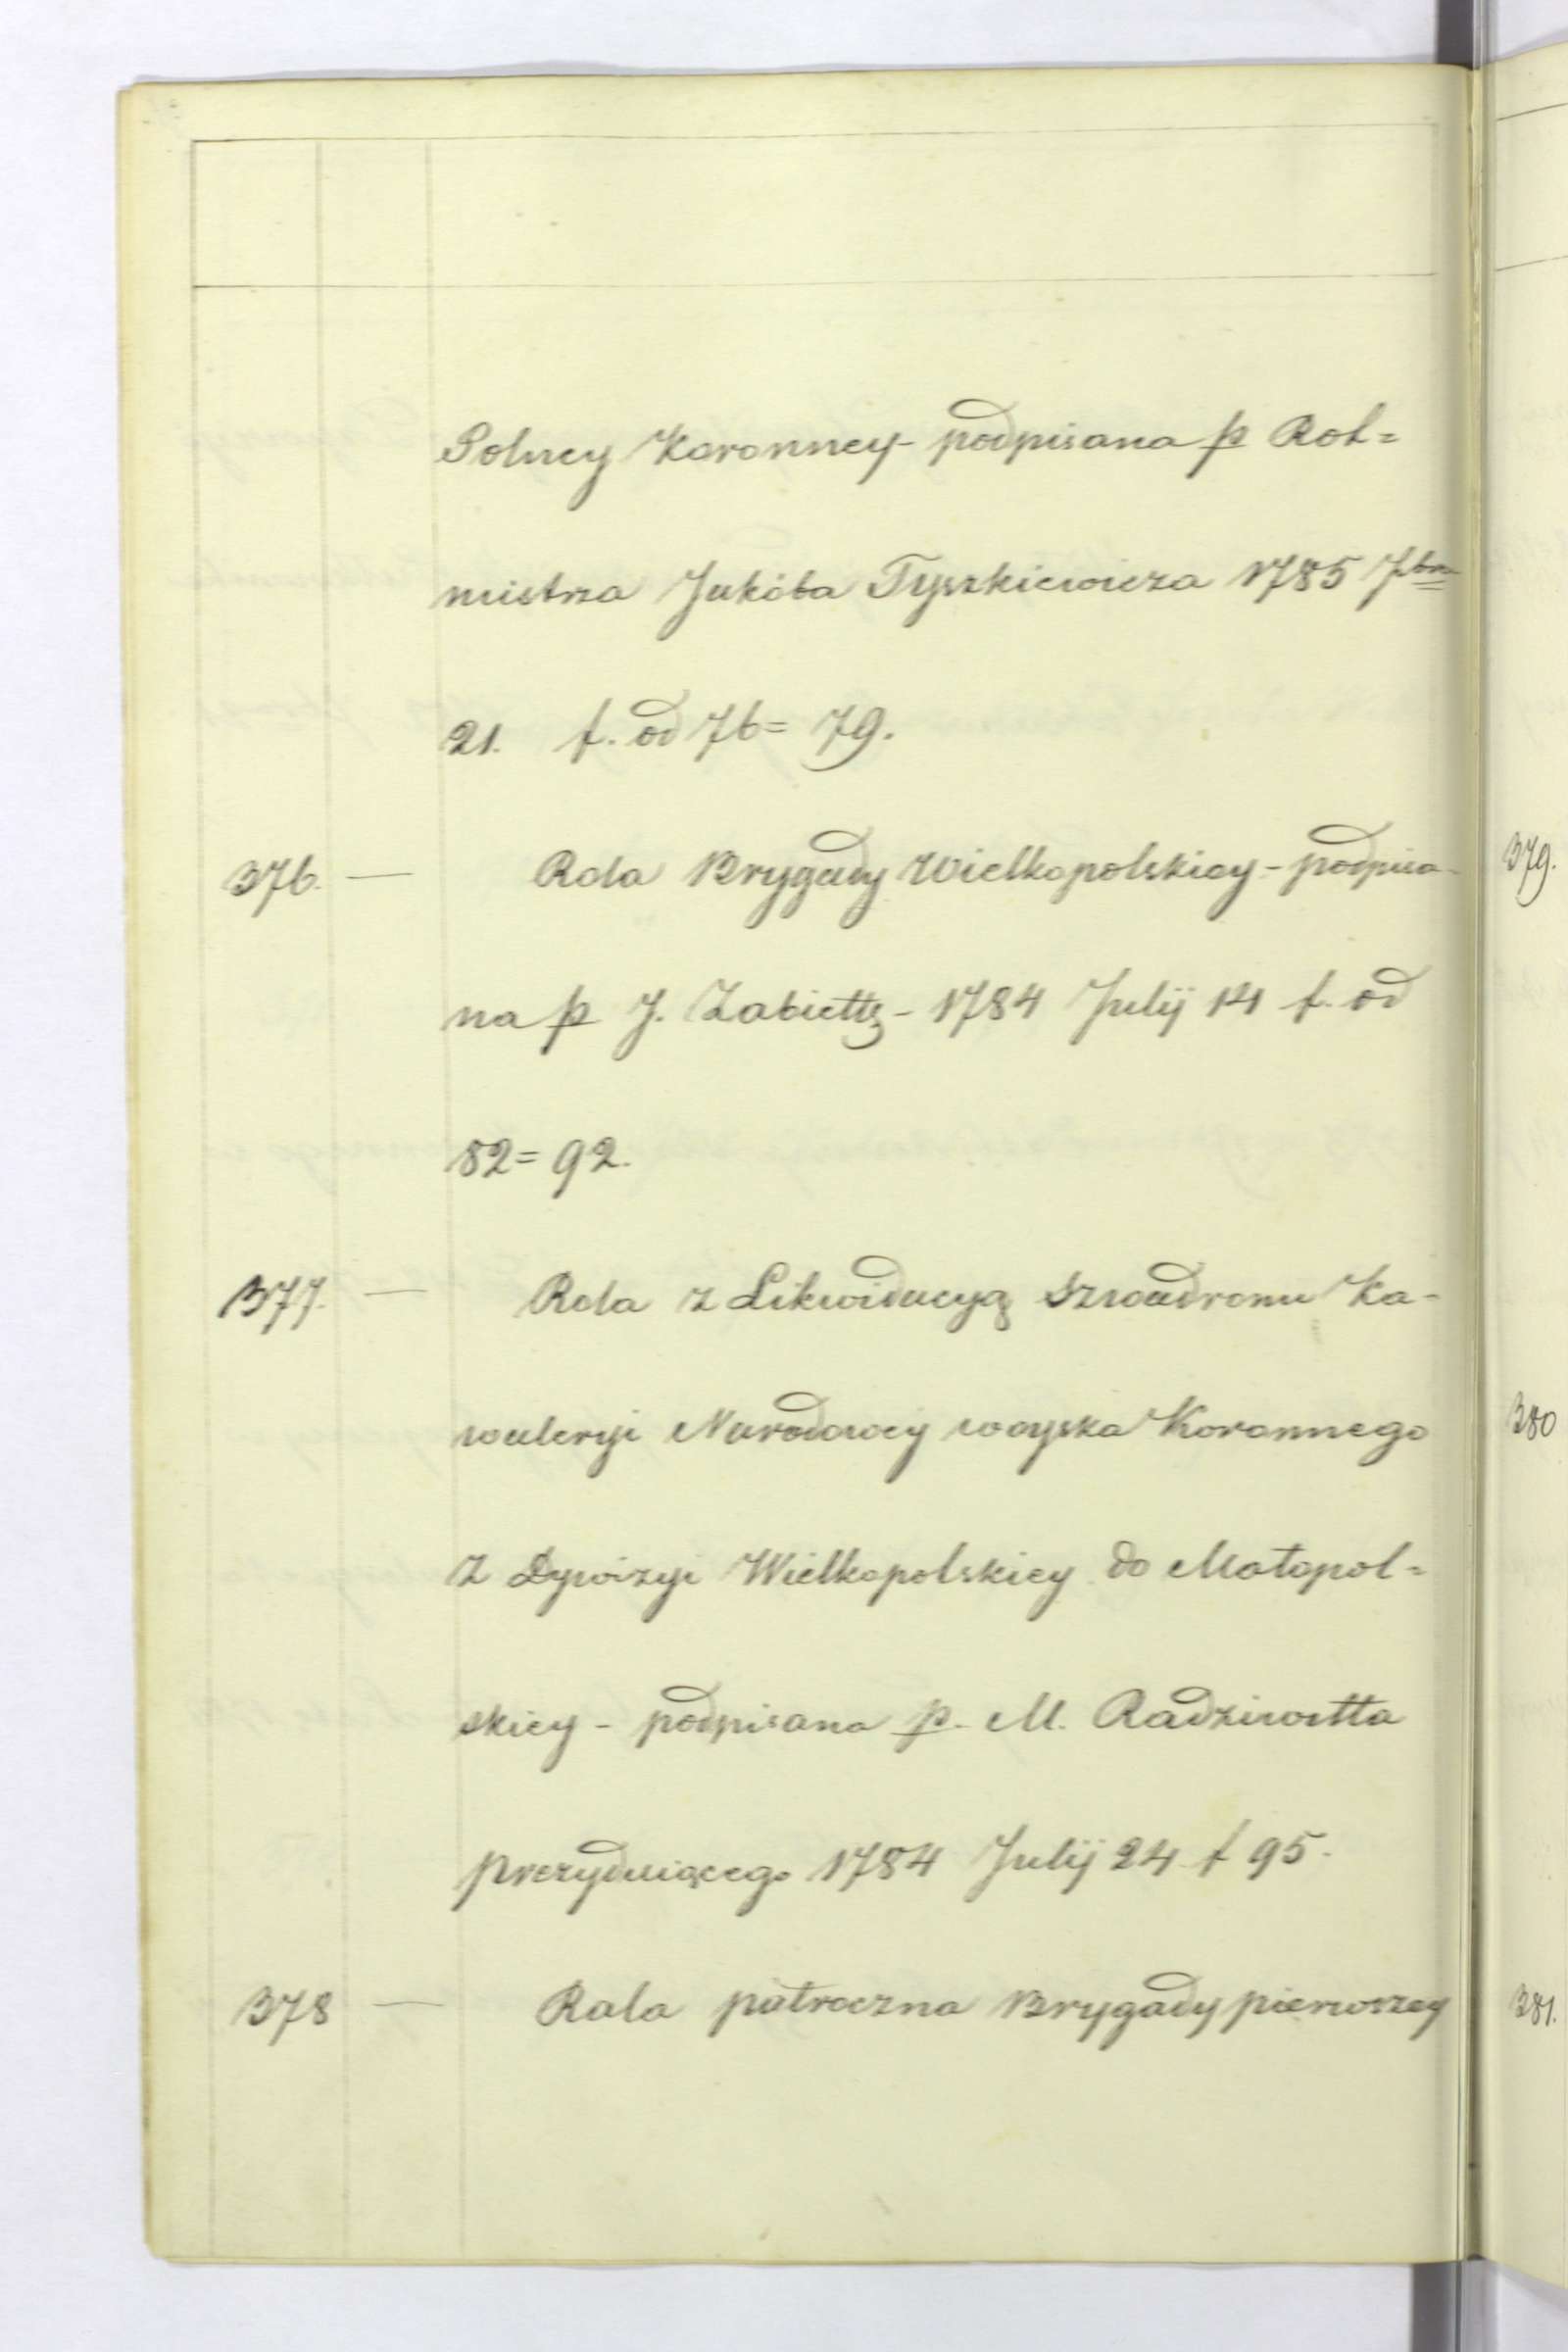 Polney Koronney - podpisana p Rot=
mistrza Jakóba Tyszkiewicza 1785 7bra
21. f. od 76 = 79.
376. — Rola Brygady Wielkopolskiey - podpisa-
na p J. Zabiełłę - 1784 Julij 14 f. od
82 = 92.
377. — Rola z Likwidacyą Szwadronu Ka-
waleryi Narodowey woyska Koronnego
z Dywizyi Wielkopolskiey do Małopol=
skiey - podpisana p. M. Radziwiłła
prezyduiącego 1784 Julij 24 f 95.
378 — Rola pułroczna Brygady pierwszey
379.
380
381.